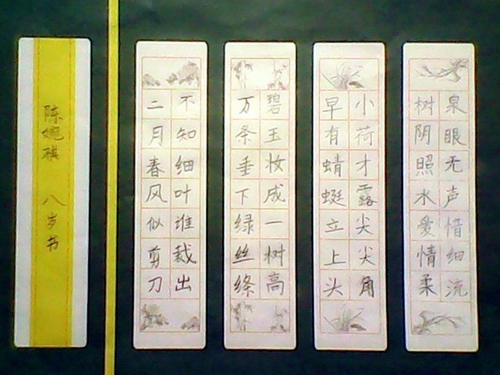 泉眼无声惜细流
树阴照水爱情柔
小荷才露尖尖角
早有蜻蜓立上头
碧玉妆成一树高
万条垂下绿丝绦
不知细叶谁裁出
二月春风似剪刀
陈婉祺 八岁书